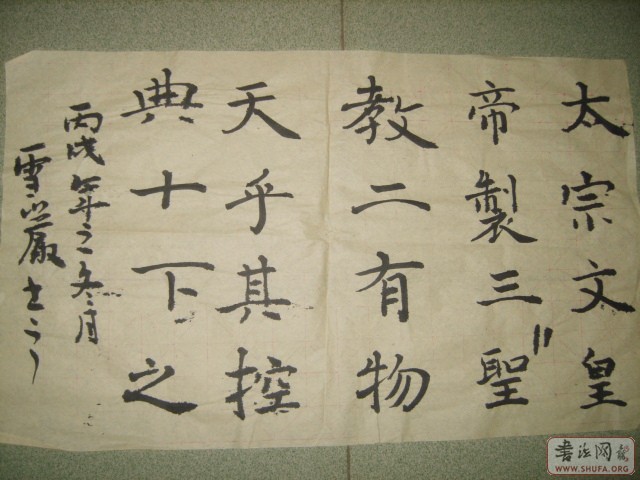 太宗文皇
帝製三聖
教二有物
天乎其控
典十下之
丙戌年之冬月
雪巖书
书法网
WWW.SHUFA.ORG